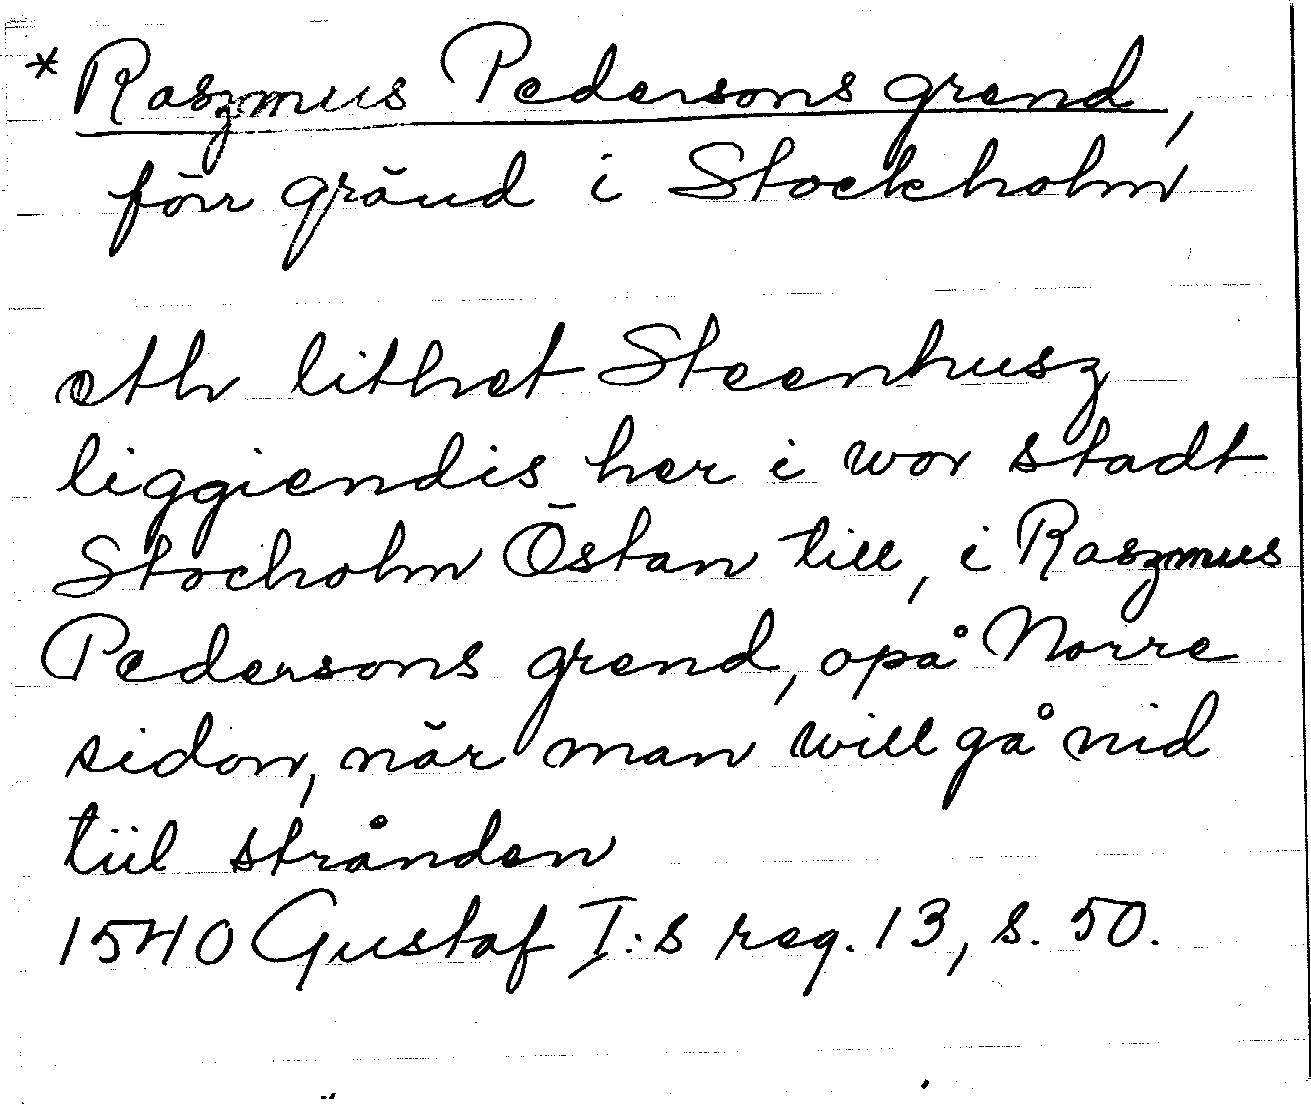 * Raszmus Pedersons grend,
förr gränd i Stockholm
eth lithet Steenhusz
liggiendis her i wor stadt
Stocholm Östan till, i Raszmus
Pedersons grend, opå Norre
sidon, när man will gå nid
tiil strånden
1540 Gustaf I:s reg. 13, s. 50.